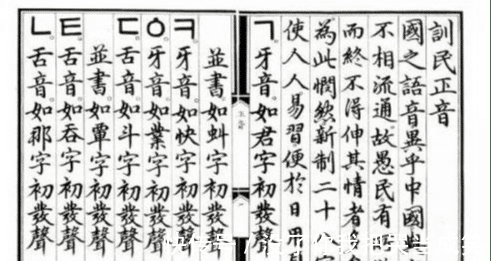 訓民正音
國之語音異乎中國
不相流通故愚民有
而終不得伸其情者
為此憫然新制二十
使人人易習便於日用
ㄱ。牙音。如君字初發聲
並書。如虯字初發聲
ㅋ。牙音。如快字初發聲
ㆁ。牙音。如業字初發聲
ㄷ。舌音。如斗字初發聲
並書。如覃字初發聲
ㅌ。舌音。如吞字初發聲
ㄴ。舌音。如那字初發聲